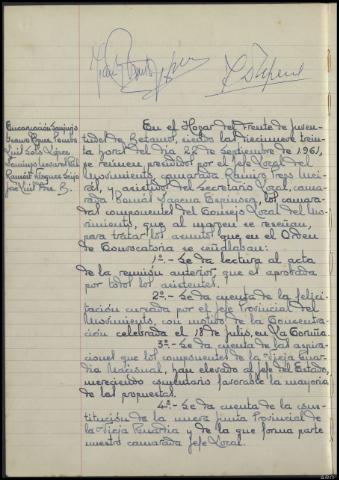 Encarnación
Luis Sota López
José Luis Fdez. B.
En el Hogar del Frente de Juven-
tudes de Betanzos, siendo las diecinueve trein-
ta horas del día 22 de Septiembre de 1961,
se reúnen, presididos por el Jefe Local del
Movimiento, camarada Ramiro
y asistidos del Secretario Local, cama-
rada Espinosa, los cama-
radas componentes del Consejo Local del Mo-
vimiento, que al margen se reseñan,
para tratar los asuntos que en el Orden
de Convocatoria se señalaban:
1º.- Se da lectura al acta
de la reunión anterior, que es aprobada
por todos los asistentes.
2º.- Se da cuenta de la felici-
tación cursada por el Jefe Provincial del
Movimiento, con motivo de la Concentra-
ción celebrada el 18 de julio, en La Coruña.
3º.- Se da cuenta de las aspira-
ciones que los componentes de la Vieja Guar-
dia Nacional, han elevado al Jefe del Estado,
mereciendo comentario favorable la mayoría
de las propuestas.
4º.- Se da cuenta de la cons-
titución de la nueva Junta Provincial de
la Vieja Guardia y de la que forma parte
nuestro camarada Jefe Local.